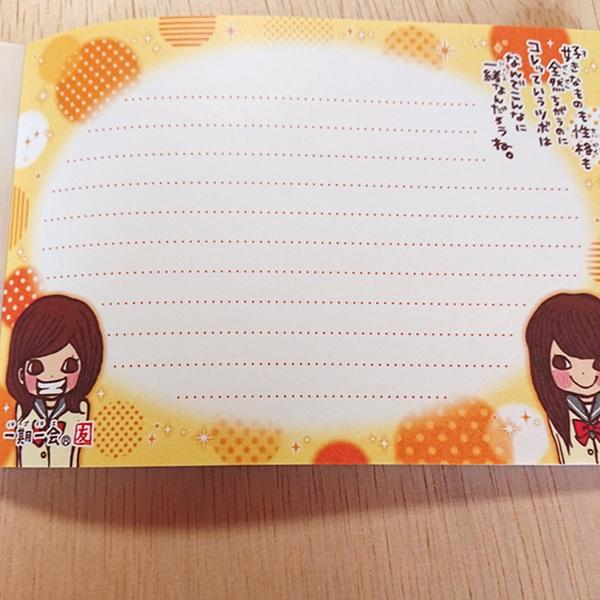 好きなものも性格も
全然ちがうのに
コレっていうツボは
なんでこんなに
一緒なんだろうね。
一期一会®友